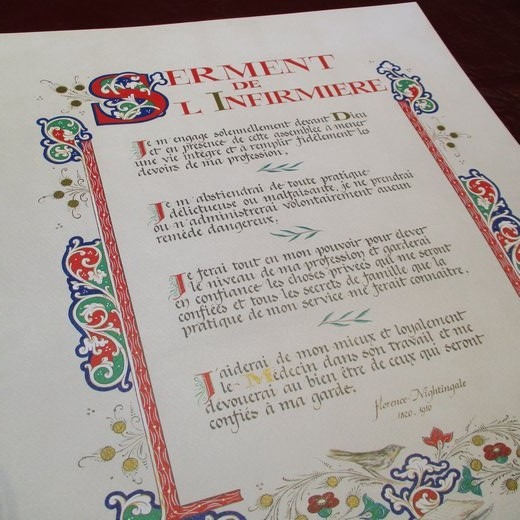 SERMENT
DE
L'INFIRMIERE
Je m'engage solennellement devant Dieu
et en présence de cette assemblée à mener
une vie intègre et à remplir fidèlement les
devoirs de ma profession.
Je m'abstiendrai de toute pratique
délictueuse ou malfaisante, je ne prendrai
ou n'administrerai volontairement aucun
remède dangereux.
Je ferai tout en mon pouvoir pour élever
le niveau de ma profession et garderai
en confiance les choses privées qui me seront
confiées et tous les secrets de famille que la
pratique de mon service me ferait connaître.
J'aiderai de mon mieux et loyalement
le Médecin dans son travail et me
dévouerai au bien être de ceux qui seront
confiés à ma garde.
Florence Nightingale
1820-1910